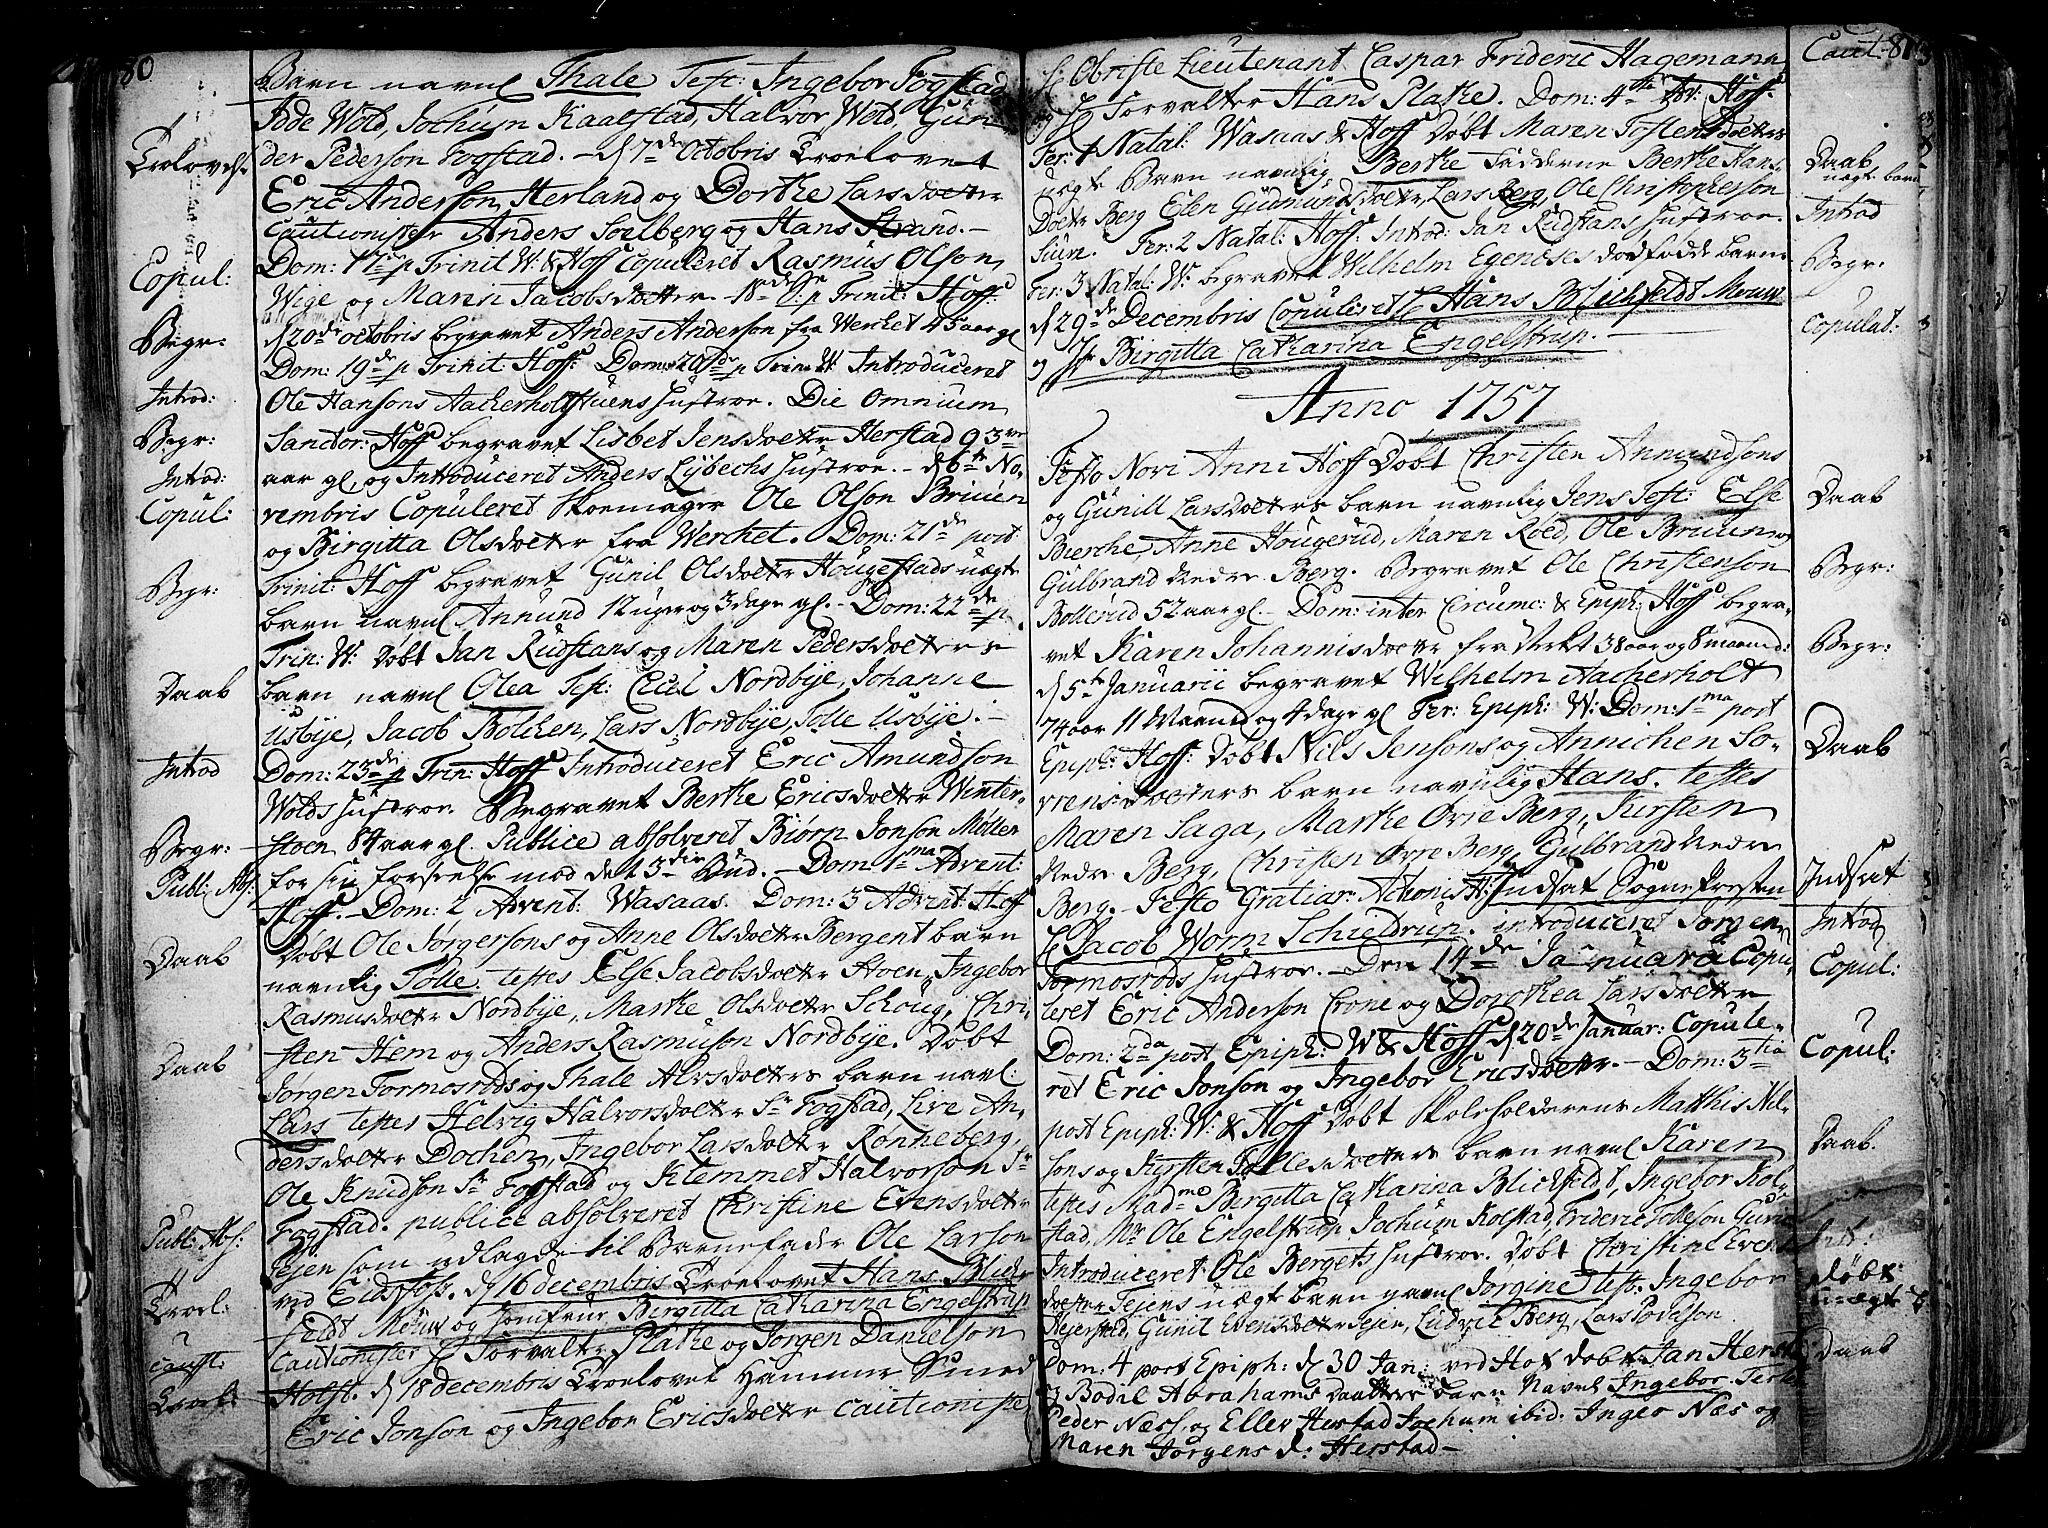 80
Barn navnl Thale Test: Ingebor Fogstad
Idde Wold, Jochum Kaalstad, Halvor Wold, Gun
der Pederson Fogstad. - d 7de Octobris Troelovet
Troelovels:
Eric Anderson Herland og Dorthe Larsdoetter
Cautionister Anders Soelberg og Hans Strand. -
Dom: 17de p Trinit W: & Hoff Copuleret Rasmus Olson
Copul:
Wige og Maren Jacobsdoetter - 18de p Trinit: Hoff:
d 20de octobris begravet Anders Anderson fra Werchet 45 aar gl
Begr:
Dom: 19de p Trinit: Hoff: Dom: 20de p Trin: W: Introduceret
Ole Hansons Aacherholtstuens Hustroe. Die Omnium
Introd:
Sanctor: Hoff begravet Lisbet Jensdoetter Herstad 93
Begr:
aar gl, og Introduceret Anders Lybechs Hustroe. - d 6te No-
Introd:
vembris Copuleret Skoemager Ole Olson Bruuen
Copul:
og Birgitta Olsdoetter fra Werchet. Dom: 21de post
Trinit: Hoff begravet Gunil Olsdoetter Hougestads uægte
Begr:
barn navnl Anund 12 uger og 3 dage gl. - Dom: 22de p.
Trin: W: Døbt Jan Rudstans og Maren Pedersdoetters
barn navnl Olea Test: Cicil Nordbye, Johanne
Daab
Usbye, Jacob Bolchen, Lars Nordbye, Tolle Usbye. -
Dom: 23die p Trin: Hoff Introduceret Eric Amundson
Introd
Wolds Hustroe. Begravet Berthe Ericsdoetter Winter-
stoen 84 aar gl. Publice absolveret Biørn Jonson Møllen
Begr:
for sin forseelse mod det 3die Bud. - Dom 1ma Advent:
Publ: Abs:
Hoff. - Dom: 2 Advent: Wasaas. Dom: 3 Advent: Hoff
Døbt Ole Jørgersons og Anne Olsdoetter Bergent barn
Daab
navnlig Tolle. testes Else Jacobsdoetter Stoen, Ingebor
Rasmusdoetter Nordbye, Marthe Olsdoetter Schoug, Chri-
sten Hem og Anders Rasmuson Nordbye. Døbt
Daab
Jørgen Formosrøds og Thale Alvsdoetters barn navl:
Lars testes Helvig Halvorsdoetter Sr Fogstad, Live An-
dersdoetter Dochen, Ingebor Larsdoetter Rønneberg,
Ole Knudson Sr Fogstad og Klemmet Halvorson Sr
Fogstad. publice absolveret Christine Evensdoetter
Publ: Abs:
Tejen som udlagde til Barnefader Ole Larson
ved Eidsfoss. d 16 decembris Troelovet Hans Blich-
Troel:
feldt Meuw og Jomfrue Birgitta Catharina Engelstrup
Cautionister Forvalter Plathe og Jorgen Danielson
caust:
Holst. d 18 decembris Troelovet Hammer Smed
Troel:
Eric Jonson og Ingebor Ericsdoetter cautioniste
Caut: 81
Obriste Lieutenant Caspar Frideric Hagemann
og Forvalter Hans Plathe. Dom: 4the Adv: Hoff.
Fer: 1 Natal: Wasaas & Hoff Døbt Maren Tostensdoetter
Daab
uægte barn
uegte Barn navnlig Berthe Fadderne Berthe Hans
Doetr Berg Elen Gudmundsdoetter, Lars Berg, Ole Christopherson
Suen. Fer: 2 Natal: Hoff: Introd: Jan Rudstans Hustroe.
Introd
Fer: 3 Natal: W: begravet Wilhelm Egenæses dødfødde barn
Begr:
d 29de Decembris Copuleret Hans Blichfeldt Meuw
Copulat:
og Jfr Birgitta Catharina Engelstrup. -
Anno 1757
Festo Novi Anni Hoff Døbt Christen Anmundsons
og Gunill Larsdoetters barn navnlig Jens Test: Else
Daab
Bierche, Anne Hougerud, Maren Roed, Ole Bruun og
Gulbrand Nedre Berg. Begravet Ole Christenson
Begr:
Bollerud 52 aar gl. - Dom: inter Circumc: & Epiph: Hoff begra-
vet Karen Johannisdoetter fra Verket 38 aar og 8 maaned:
Begr:
d 5te Januarii begravet Wilhelm Aacherholt
74 aar 11 Maaned og 4 dage gl Fer: Epiph: W: Dom: 1ma post
Epiph: Hoff: Døbt Nils Jensons og Annichen So-
Daab
vrensdoetters barn navnlig Hans. testes
Maren Saga, Marthe Ovre Berg, Kirsten
Nedre Berg, Christen Ovre Berg, Gulbrand Nedre
Berg. - Festo Gratiar: Actionis H: Indsat Sogne Presten
Indsat
Jacob Worm Schieldrup. introduceret Jorgen
Introd
Formosrøds Hustroe. - Den 14de Januarii Copu-
Copul:
leret Eric Anderson Crone og Dorothea Larsdoetter
Dom: 2da post Epiph: W & Hoff d 20de Januar: Copule-
Copul:
ret Eric Jonson og Ingebor Ericsdoetter. - Dom: 3tia
post Epiph: W: & Hoff Døbt Skoleholderens Matthis Nil-
sons og Kirsten Tollesdoetters barn navnl Karen
Daab.
testes Madme Birgitta Catharina Blichfeldt, Ingebor Kol-
stad, Mr Ole Engelstrup Jochum Kolstad, Frideric Tolleson Gune
Introduceret Ole Bergets Hustroe. Døbt Christine Evens
Int:
doetter Tejens uægt barn navnl Jorgine test: Ingebor
døbt
uægt b
Hejersted, Gunil Evensdoetter Tejen, Ludvil Berg, Lars Povelson
Dom: 4 post Epiph: d 30 Jan: ved Hof døbt Jan Herst
Daab
og Bodil Abrahams Daatters barn Navnl Ingebor. Teste
Peder Næss, og Eller Herstad Jochum ibid: Inger Næs og
Maren Jörgens d: Herstad -